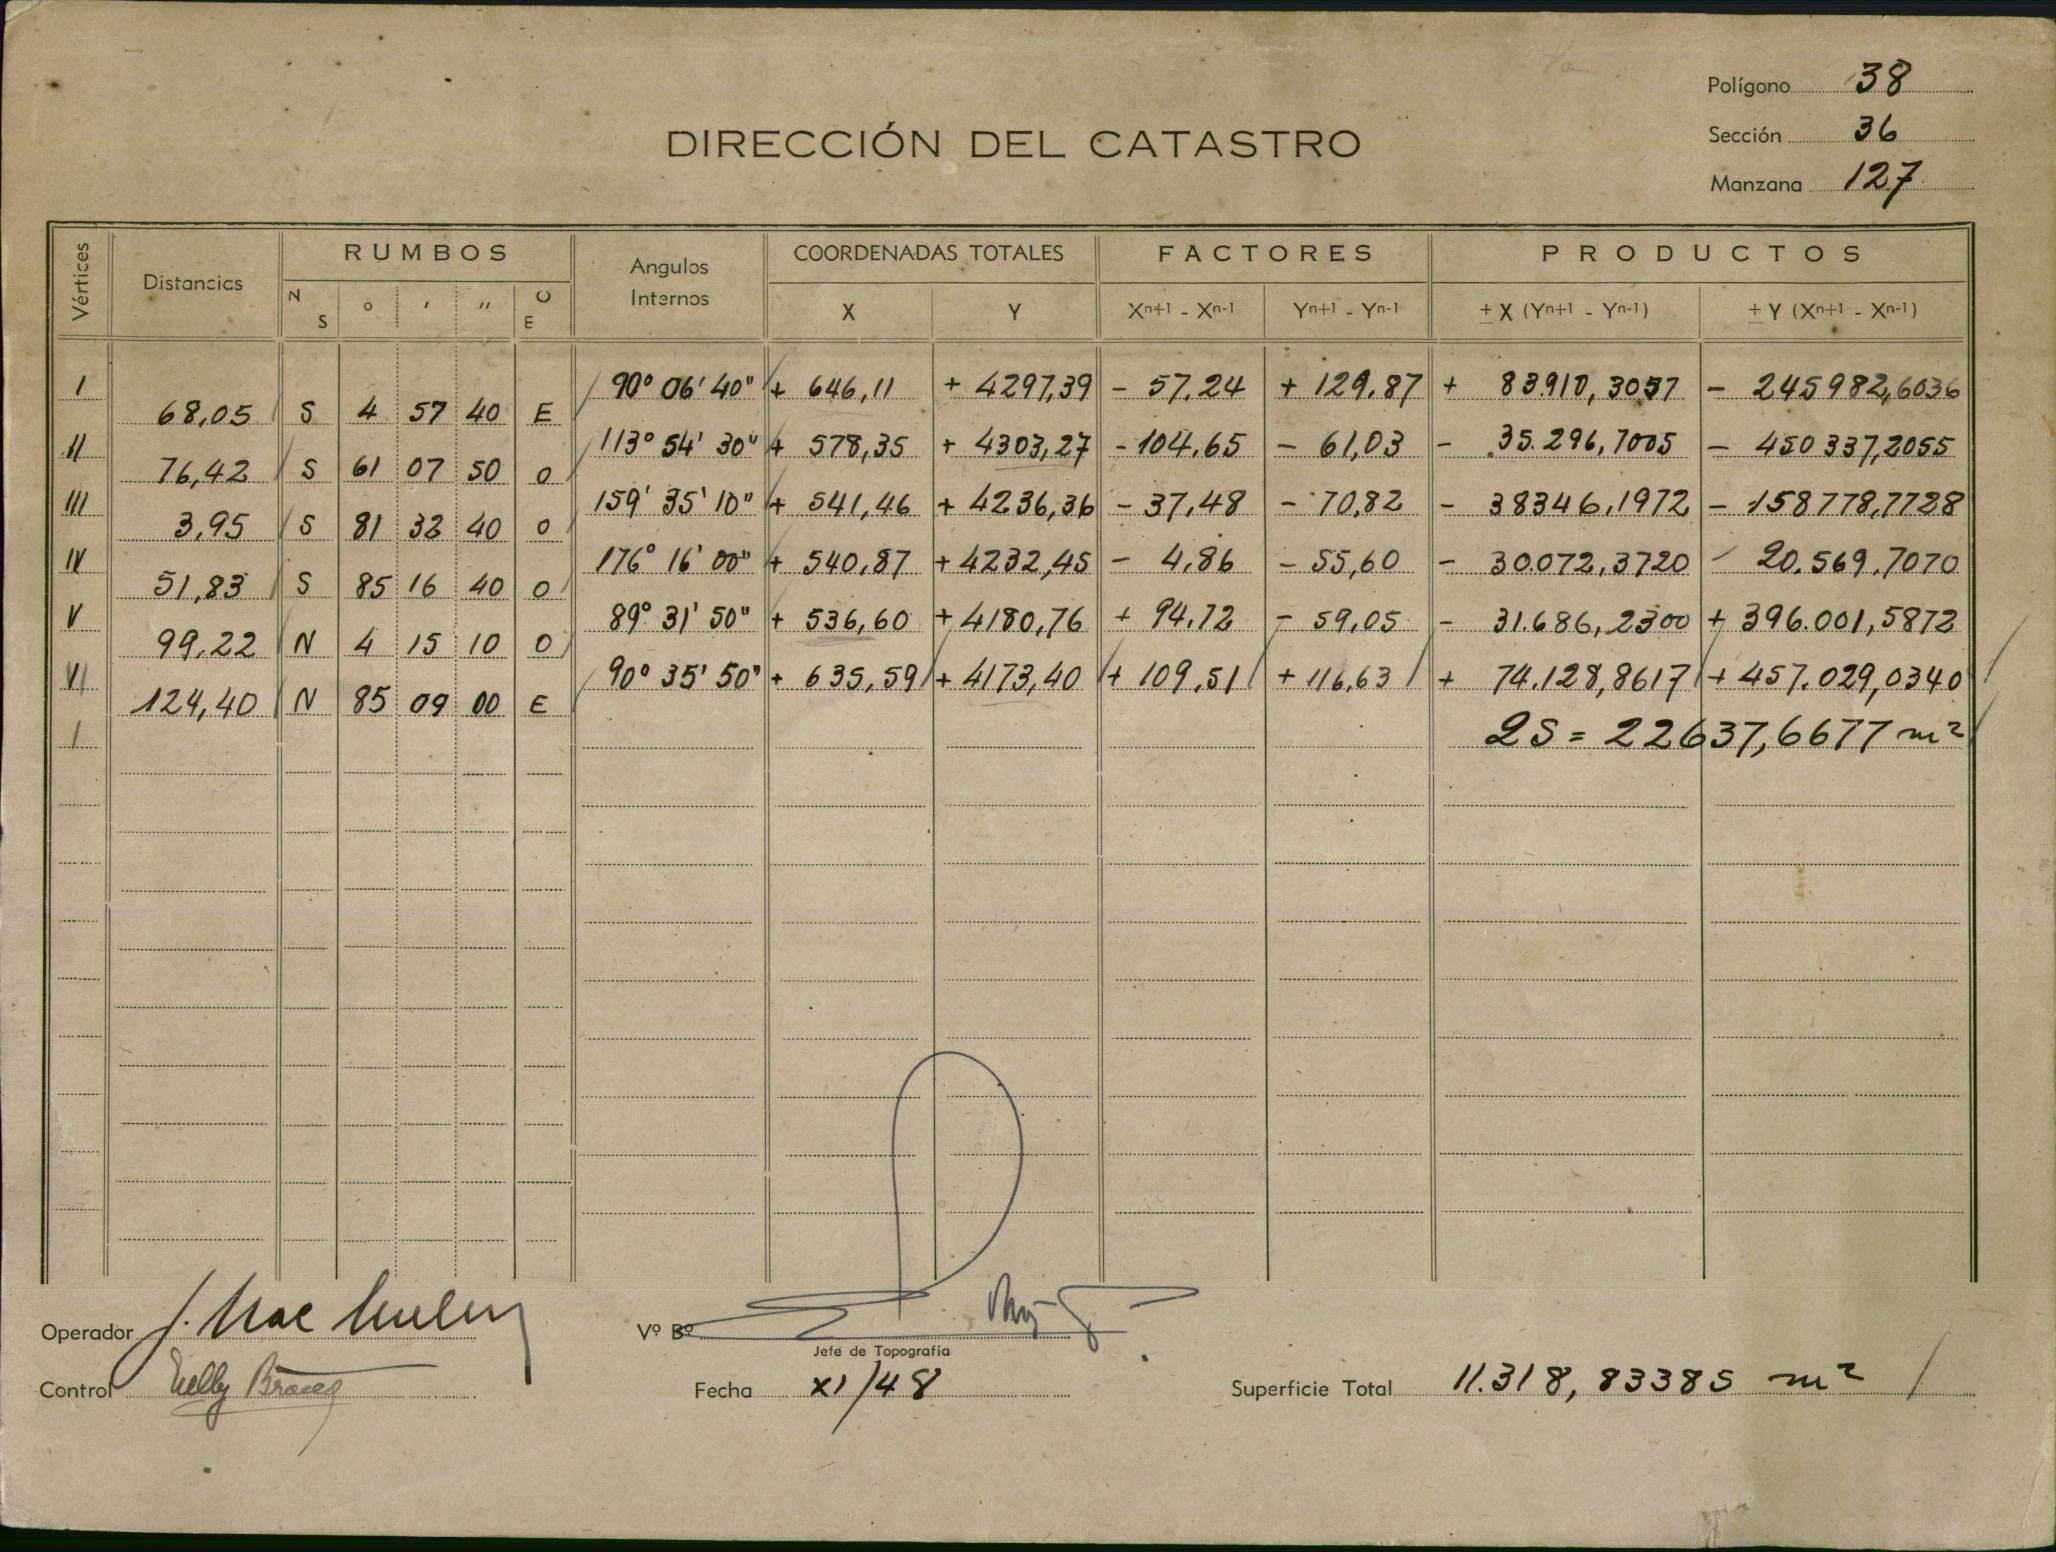 Polígono 38
DIRECCIÓN DEL CATASTRO
Sección 36
Manzana 127
Vértices Distancias RUMBOS Angulos Internos COORDENADAS TOTALES FACTORES PRODUCTOS
N S ° ' " O E X Y Xn+1 - Xn-1 Yn+1 - Yn-1 ± X (Yn+1 - Yn-1) ± Y (Xn+1 - Xn-1)
I 90° 06' 40" + 646,11 + 4297,39 - 57,24 + 129,87 + 83.910,3057 - 245982,6036
68,05 S 4 57 40 E
II 113° 54' 30" + 578,35 + 4303,27 - 104,65 - 61,03 - 35.296,7005 - 450337,2055
76,42 S 61 07 50 O
III 159' 35' 10" + 541,46 + 4236,36 - 37,48 - 70,82 - 38346,1972 - 158778,7728
3,95 S 81 32 40 O
IV 176° 16' 00" + 540,87 + 4232,45 - 4,86 - 55,60 - 30.072,3720 - 20.569,7070
51,83 S 85 16 40 O
V 89° 31' 50" + 536,60 + 4180,76 + 94,72 - 59,05 - 31.686,2300 + 396.001,5872
99,22 N 4 15 10 O
VI 90° 35' 50" + 635,59 + 4173,40 + 109,51 + 116,63 + 74.128,8617 + 457.029,0340
124,40 N 85 09 00 E
I 2S = 22637,6677 m²
Operador J. Mac
Vº Bº
Jefe de Topografía
Control Nelly
Fecha XI/48
Superficie Total 11.318,83385 m²